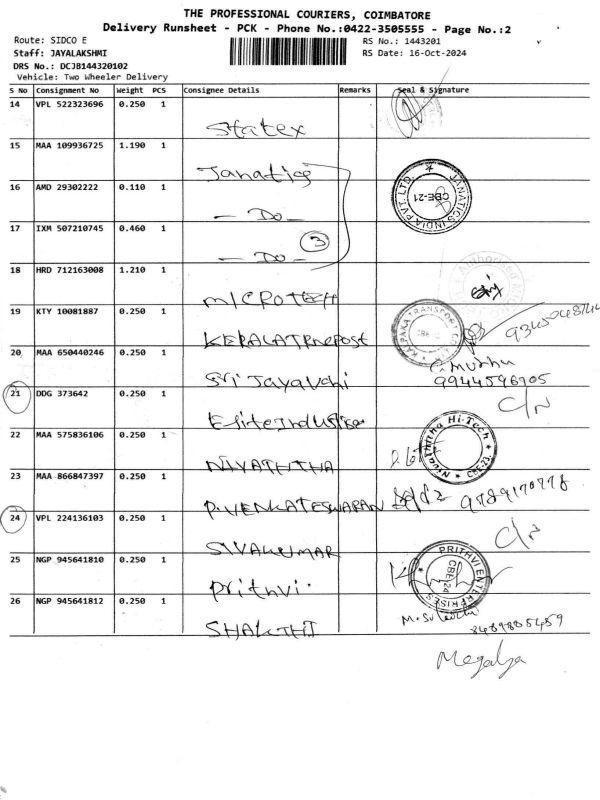 THE PROFESSIONAL COURIERS, COIMBATORE
Delivery Runsheet - PCK - Phone No.:0422-3505555 - Page No.:2
Route: SIDCO E
RS No.: 1443201
Staff: JAYALAKSHMI
RS Date: 16-Oct-2024
DRS No.: DCJB144320102
Vehicle: Two Wheeler Delivery
S No Consignment No Weight PCS Consignee Details Remarks Seal & Signature
14 VPL 522323696 0.250 1
Statex
15 MAA 109936725 1.190 1
Janatics
JANATICS INDIA PVT. LTD. CBE-21
16 AMD 29302222 0.110 1
- Do -
17 IXM 507210745 0.460 1
3
- Do -
18 HRD 712163008 1.210 1
MICROTECH
19 KTY 10081887 0.250 1
KALPAKA TRANSPORT CO
20 MAA 650440246 0.250 1
9944596905
21 DDG 373642 0.250 1
C/N
22 MAA 575836106 0.250 1
Nivaththa Hi-Tech
NIVATHTHA
23 MAA 866847397 0.250 1
P.VENKATESWARAN
9789170778
24 VPL 224136103 0.250 1
C/N
SIVAKUMAR
25 NGP 945641810 0.250 1
PRITHVI ENTERPRISES CBE-24
Prithvi.
26 NGP 945641812 0.250 1
SHAKTHI
8489885459